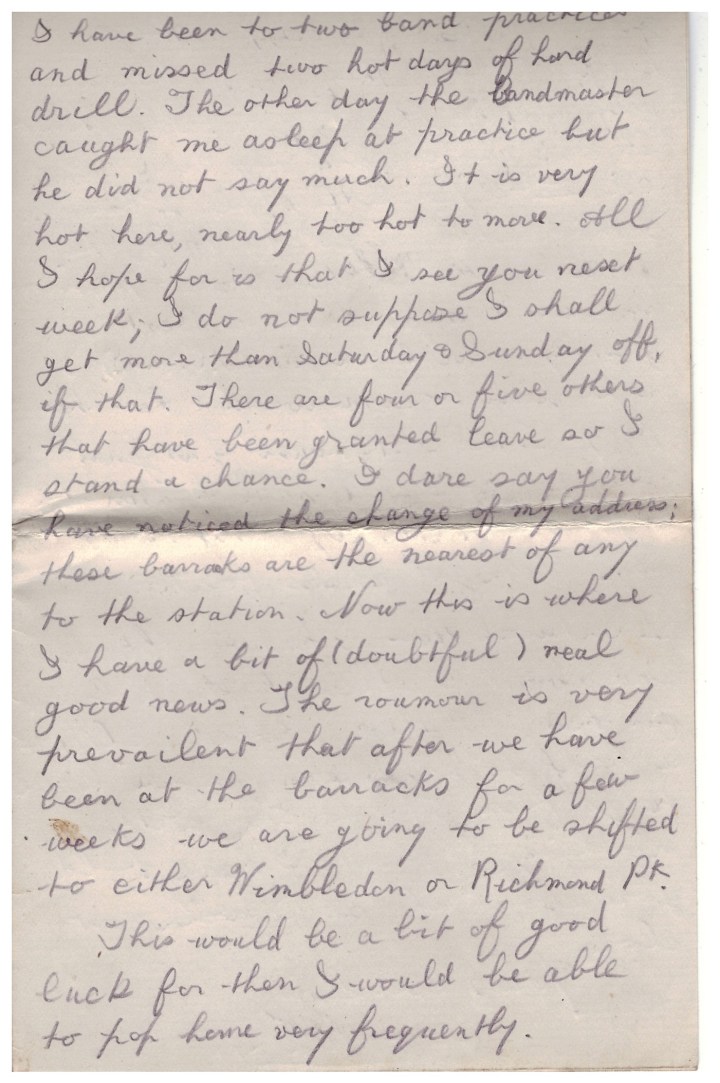 I have been to two band practices
and missed two hot days of hard
drill. The other day the bandmaster
caught me asleep at practice but
he did not say much. It is very
hot here, nearly too hot to move. All
I hope for is that I see you next
week; I do not suppose I shall
get more than Saturday & Sunday off,
if that. There are four or five others
that have been granted leave so I
stand a chance. I dare say you
have noticed the change of my address;
these barracks are the nearest of any
to the station. Now this is where
I have a bit of (doubtful) real
good news. The roumour is very
prevailent that after we have
been at the barracks for a few
weeks we are going to be shifted
to either Wimbledon or Richmond Pk.
This would be a bit of good
luck for then I would be able
to pop home very frequently.